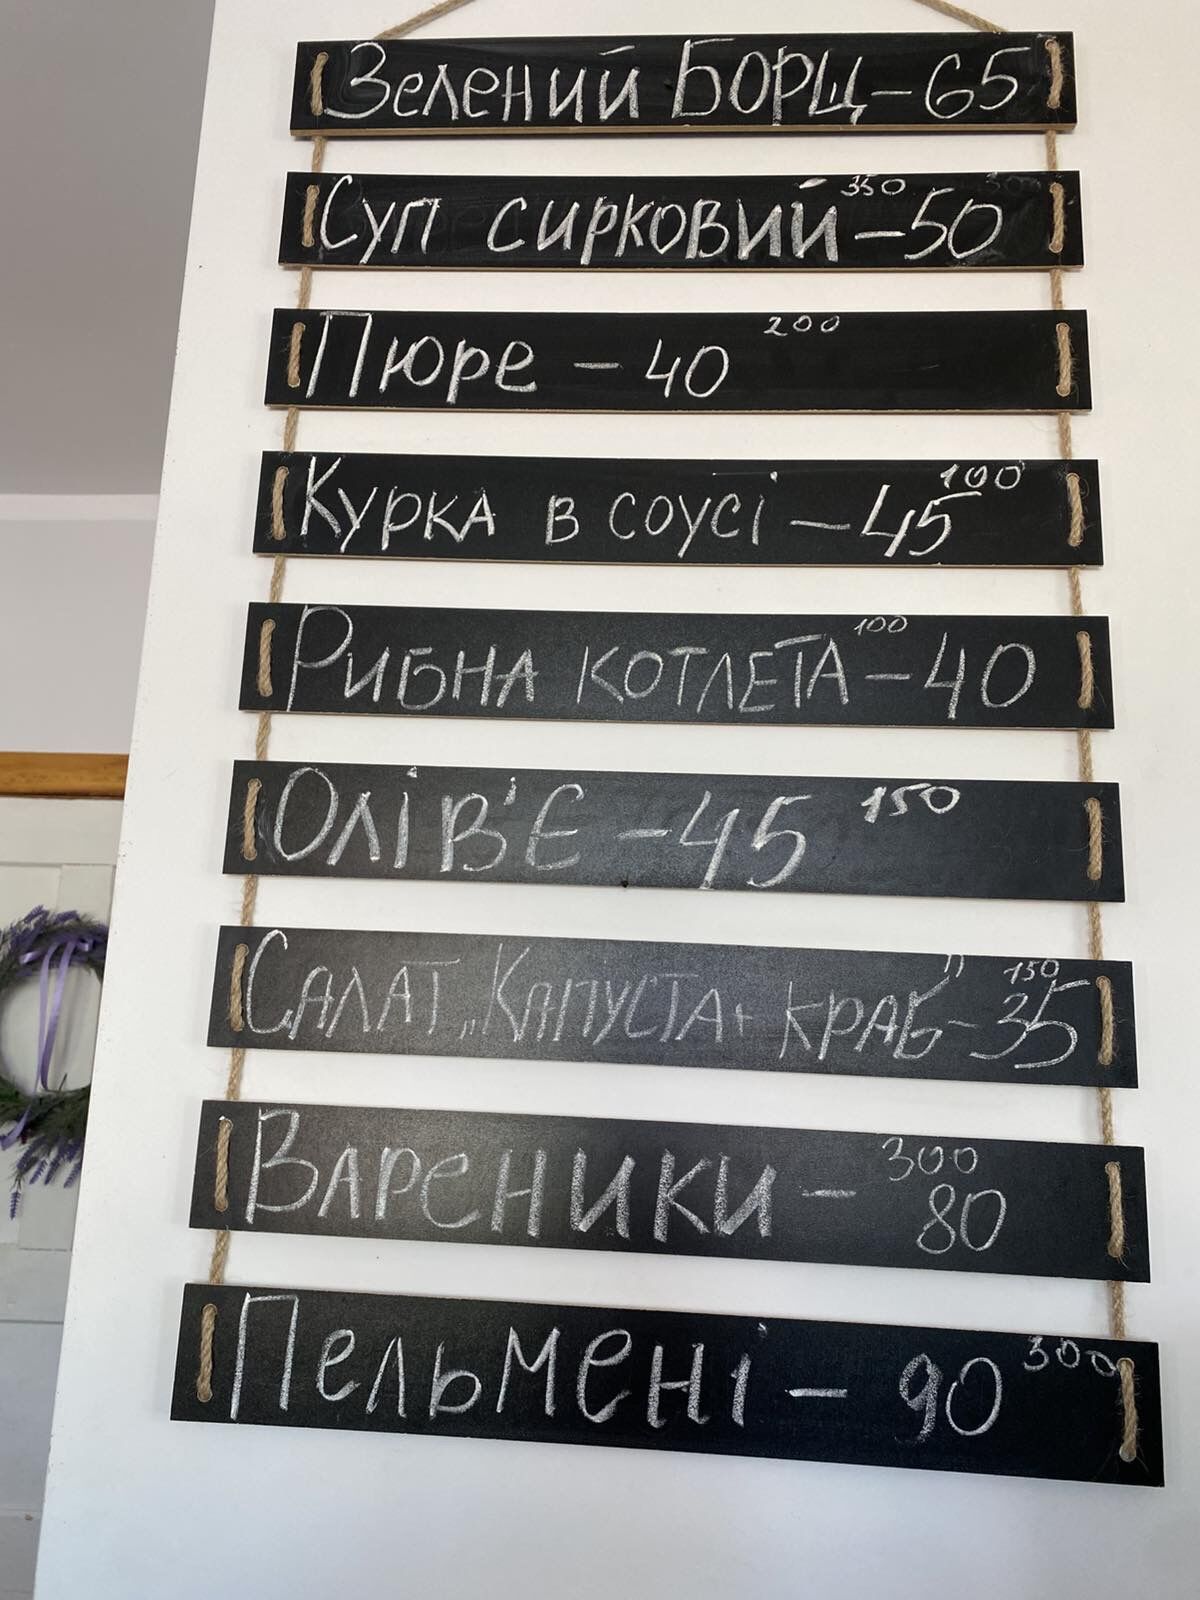 Зелений БОРЩ - 65
Суп сирковий 350 - 50
Пюре - 40 200
Курка в соусі - 45 100
Рибна котлета 100 - 40
Олів'є - 45 150
Салат „Капуста + краб" 150 - 35
Вареники - 300 80
Пельмені - 90 300